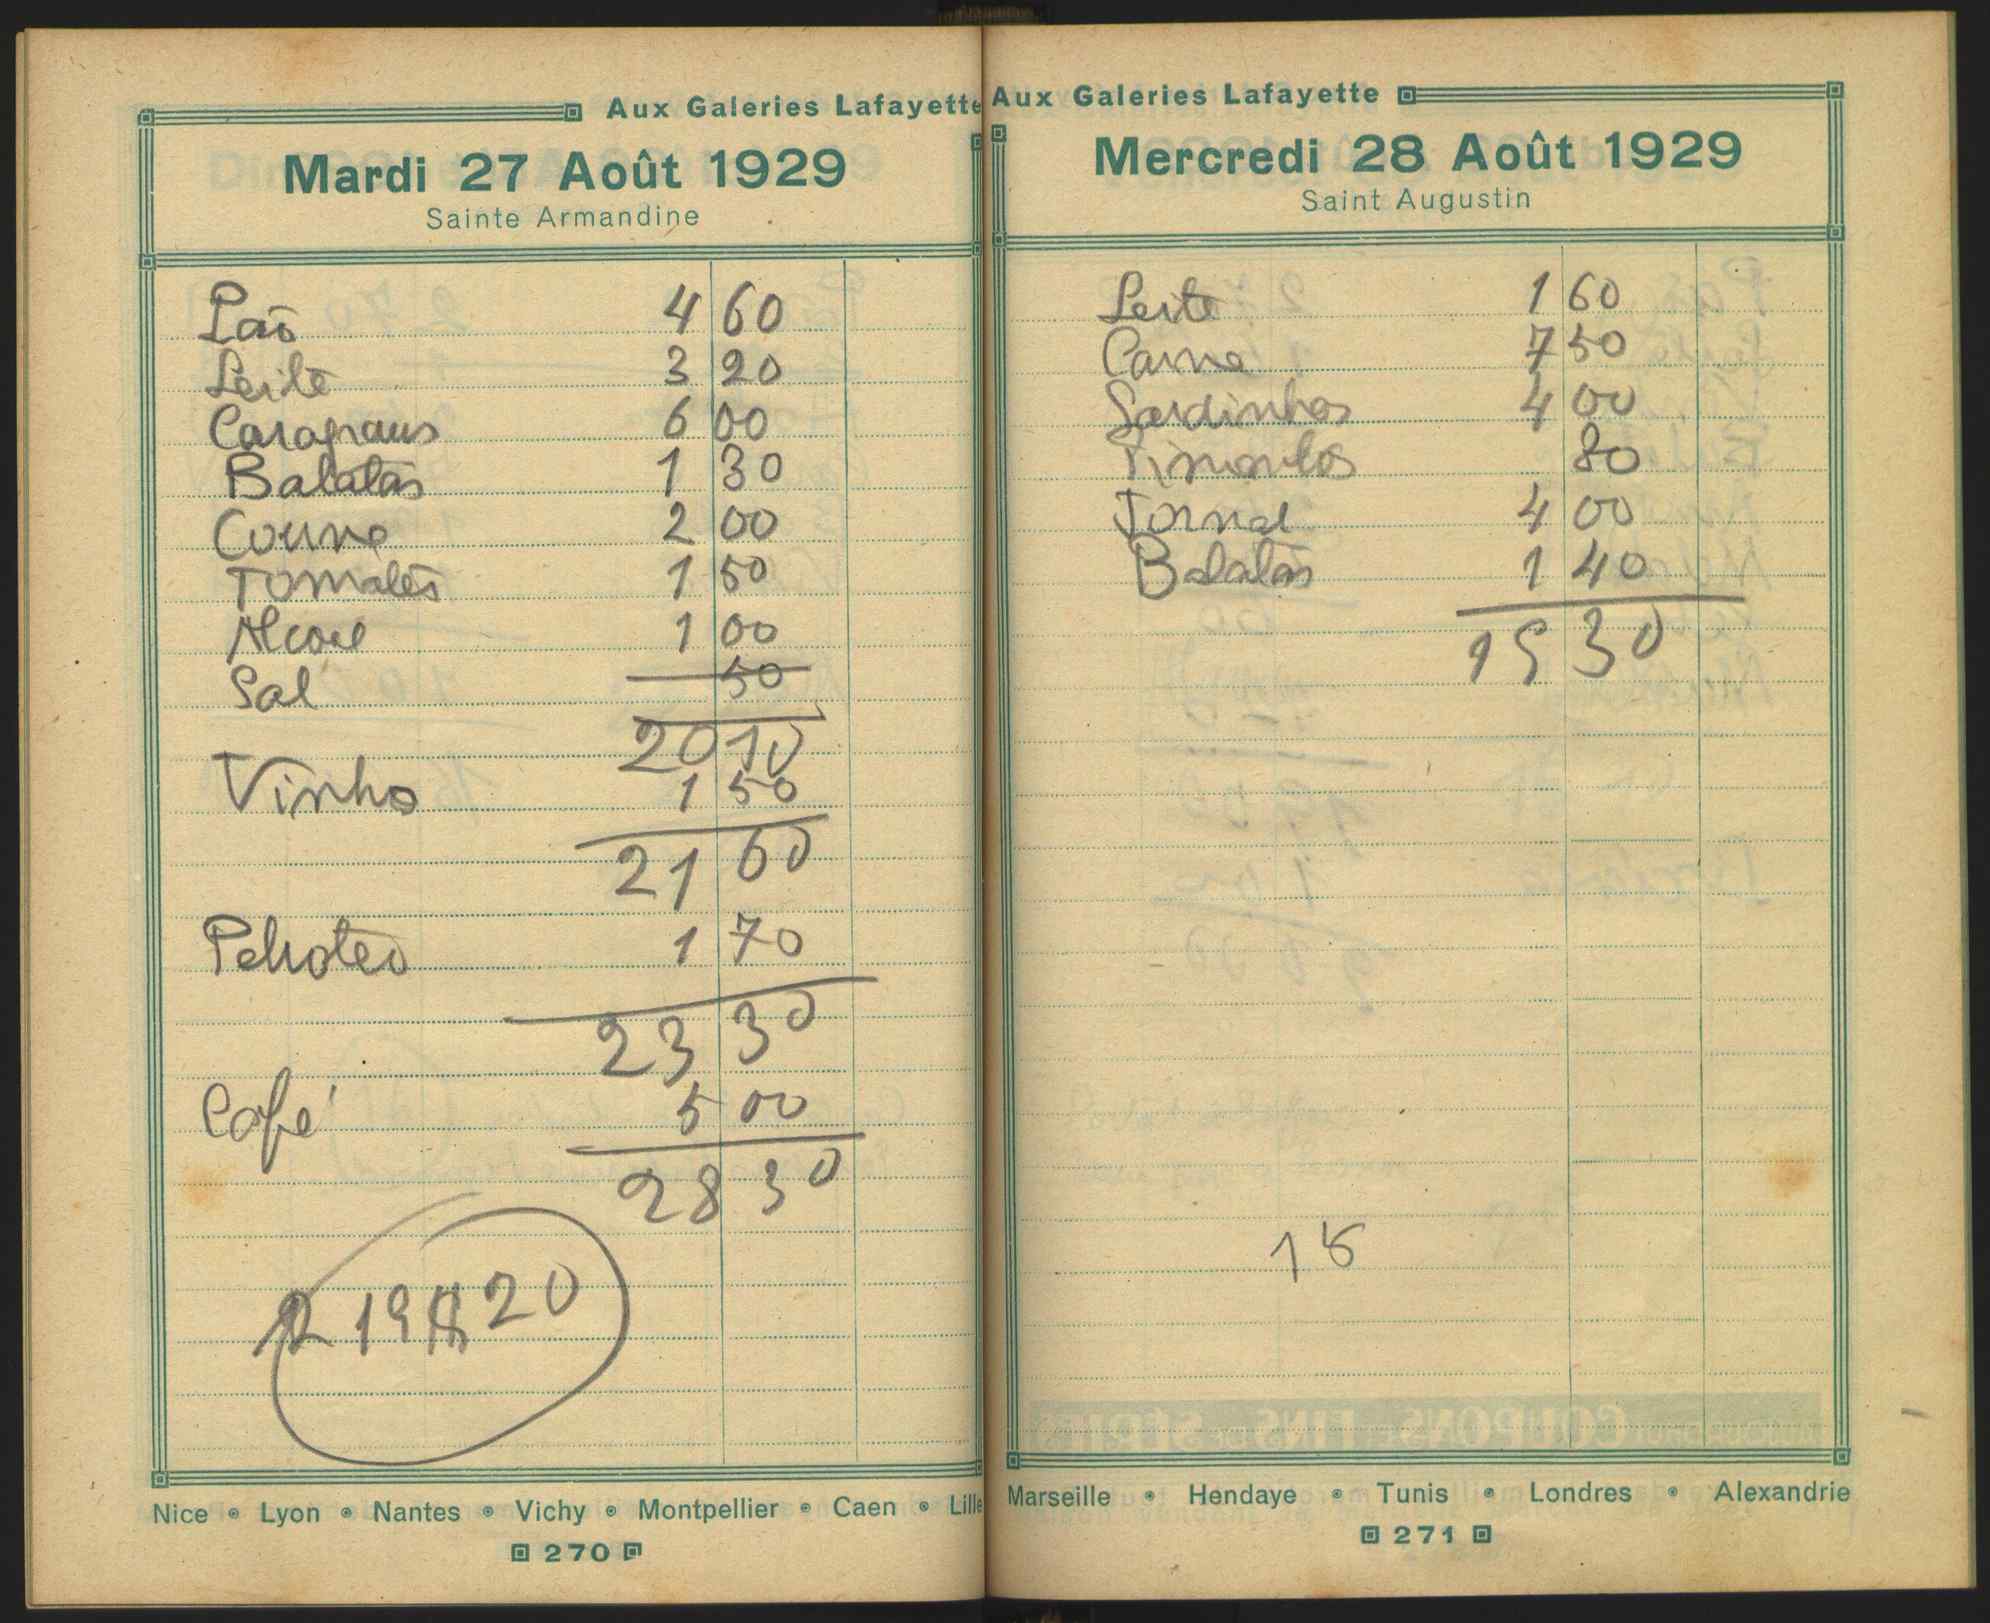 Aux Galeries Lafayette
Mardi 27 Août 1929
Sainte Armandine
Pão 4 60
Leite 3 20
Carapaus 6 00
Batatas 1 30
Couve 2 00
Tomates 1 50
Alcool 1 00
Sal 50
20 10
Vinho 1 50
21 60
1 70
23 30
Café 5 00
28 30
20
Nice • Lyon • Nantes • Vichy • Montpellier • Caen • Lille
270
Aux Galeries Lafayette
Mercredi 28 Août 1929
Saint Augustin
Leite 1 60
Carne 7 50
Sardinhas 4 00
Pimentos 80
Jornal 4 00
Batatas 1 40
19 30
15
Marseille • Hendaye • Tunis • Londres • Alexandrie
271